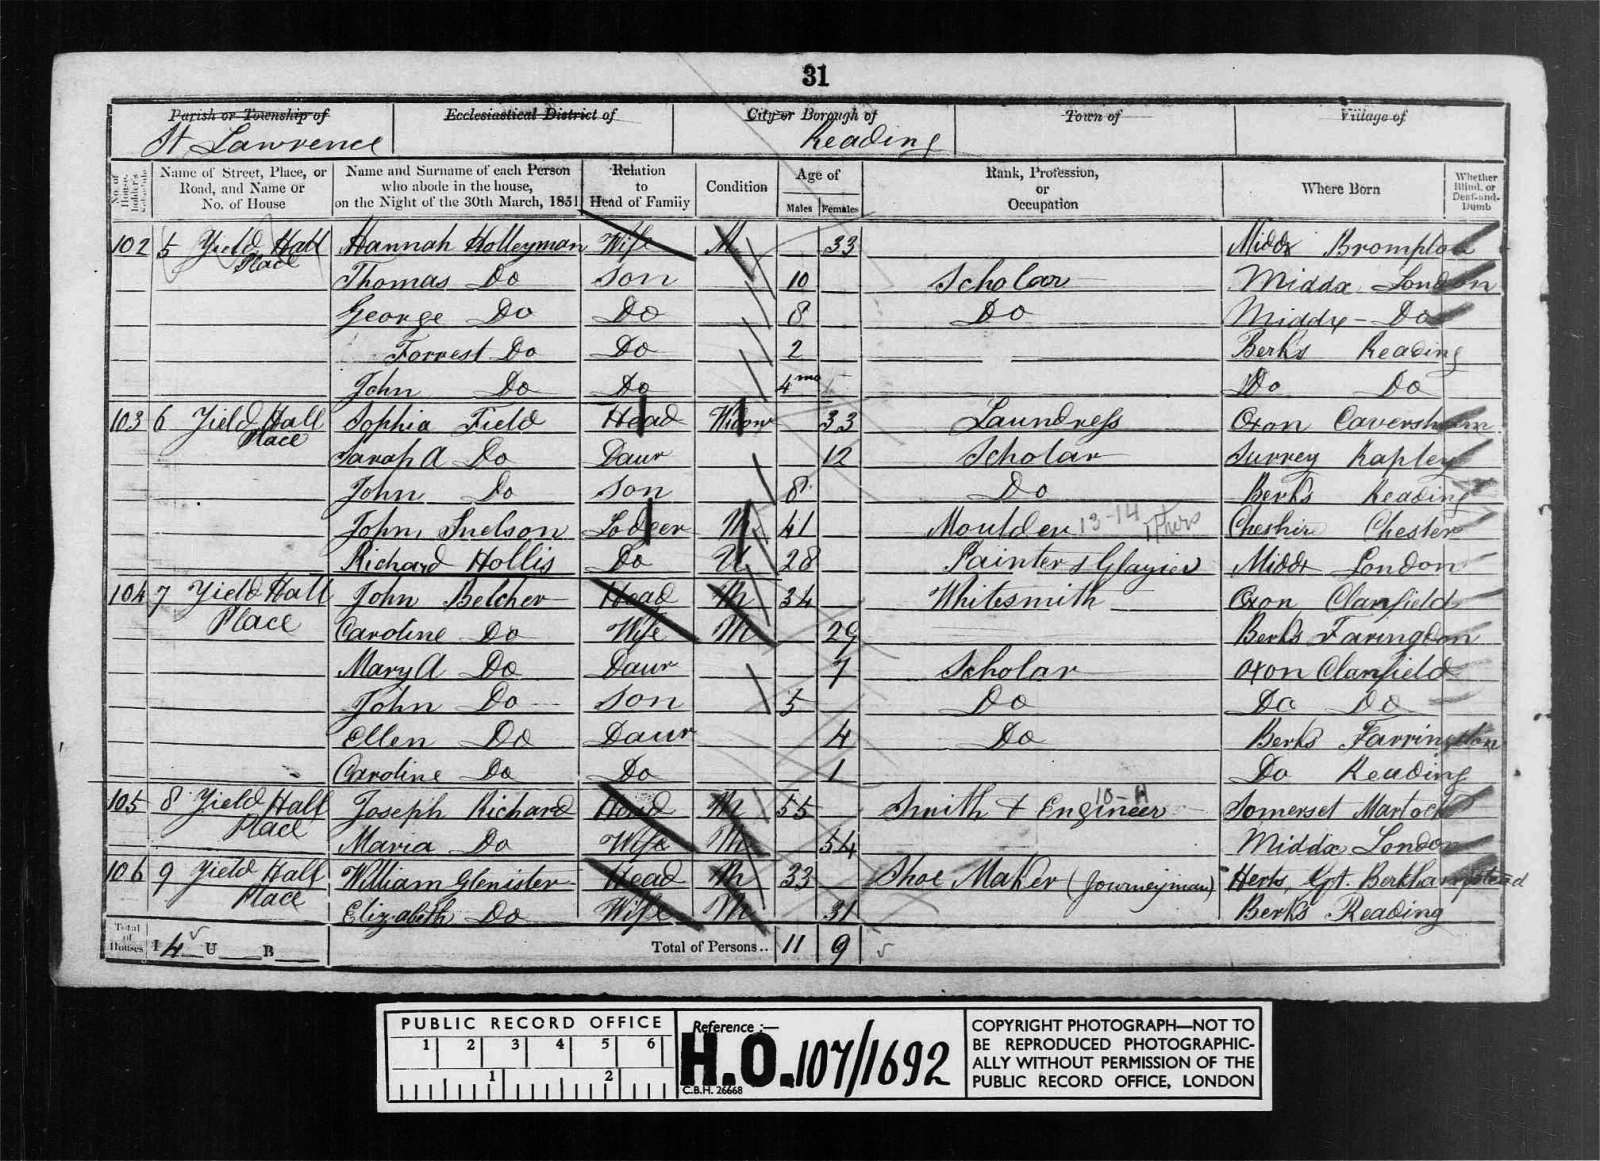 31
Parish or Township of Ecclesiastical District of City or Borough of Town of Village of
St Lawrence Reading
No. of House-holder's Schedule Name of Street, Place, or Road, and Name or No. of House Name and Surname of each Person who abode in the house, on the Night of the 30th March, 1851 Relation to Head of Family Condition Age of Males Females Rank, Profession, or Occupation Where Born Whether Blind, or Deaf-and-Dumb
102 5 Yield Hall Place Hannah Holleyman Wife M 33 Middx Brompton
Thomas Do Son 10 Scholar Middx London
George Do Do 8 Do Middx Do
Forrest Do Do 2 Berks Reading
John Do Do 4 mo Do Do
103 6 Yield Hall Place Sophia Field Head Widow 33 Laundress Oxon Caversham
Sarah A Do Daur 12 Scholar Surrey Rapley
John Do Son 8 Do Berks Reading
John Snelson Lodger M 41 Moulder 13-14 Cheshire Chester
Richard Hollis Do U 28 Painter & Glazier Middx London
104 7 Yield Hall Place John Belcher Head M 34 Whitesmith Oxon Clanfield
Caroline Do Wife M 29 Berks Faringdon
Mary A Do Daur 7 Scholar Oxon Clanfield
John Do Son 5 Do Do Do
Ellen Do Daur 4 Do Berks Farringdon
Caroline Do Do 1 Do Reading
105 8 Yield Hall Place Joseph Richard Head M 55 Smith & Engineer 10-H Somerset Martock
Maria Do Wife M 54 Middx London
106 9 Yield Hall Place William Glenister Head M 33 Shoe Maker (Journeyman) Herts Gt. Berkhampstead
Elizabeth Do Wife M 31 Berks Reading
Total of Houses I 4 U B Total of Persons.. 11 9
PUBLIC RECORD OFFICE
1 2 3 4 5 6
1 2
Reference :—
H.O. 107/1692
C.B.H. 26668
COPYRIGHT PHOTOGRAPH—NOT TO
BE REPRODUCED PHOTOGRAPHIC-
ALLY WITHOUT PERMISSION OF THE
PUBLIC RECORD OFFICE, LONDON